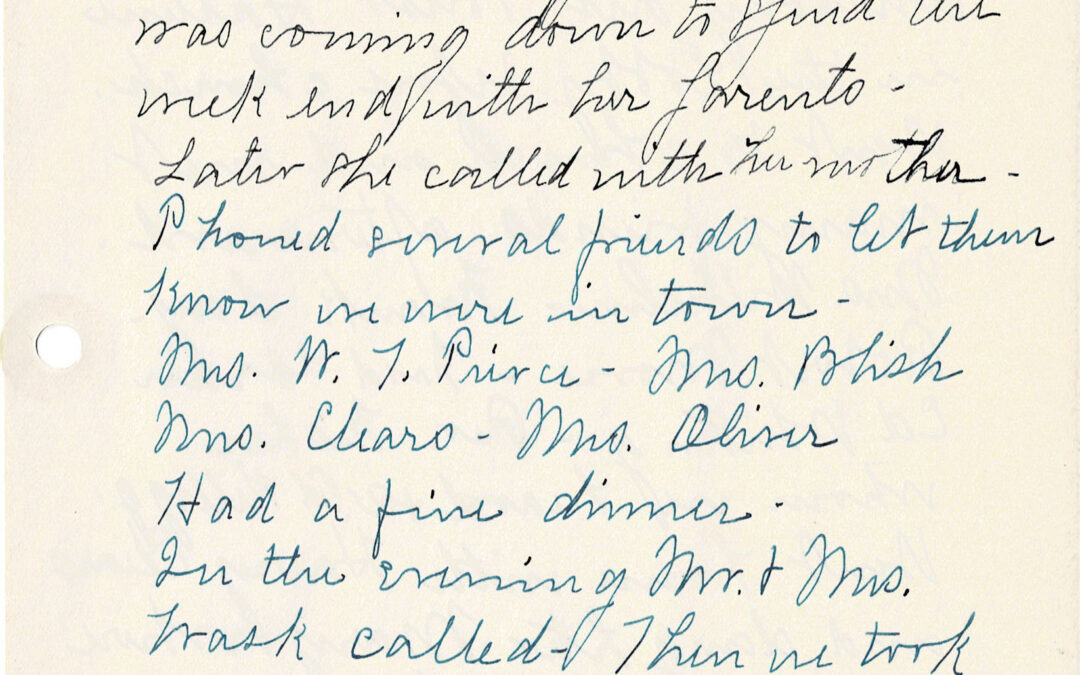 was coming down to spend the
week end with her parents -
Later she called with her mother -
Phoned several friends to let them
know we were in town -
Mrs. W. T. Pierce - Mrs. Blish
Mrs. Clears - Mrs. Oliver
Had a fine dinner -
In the evening Mr. & Mrs.
Trask called - Then we took